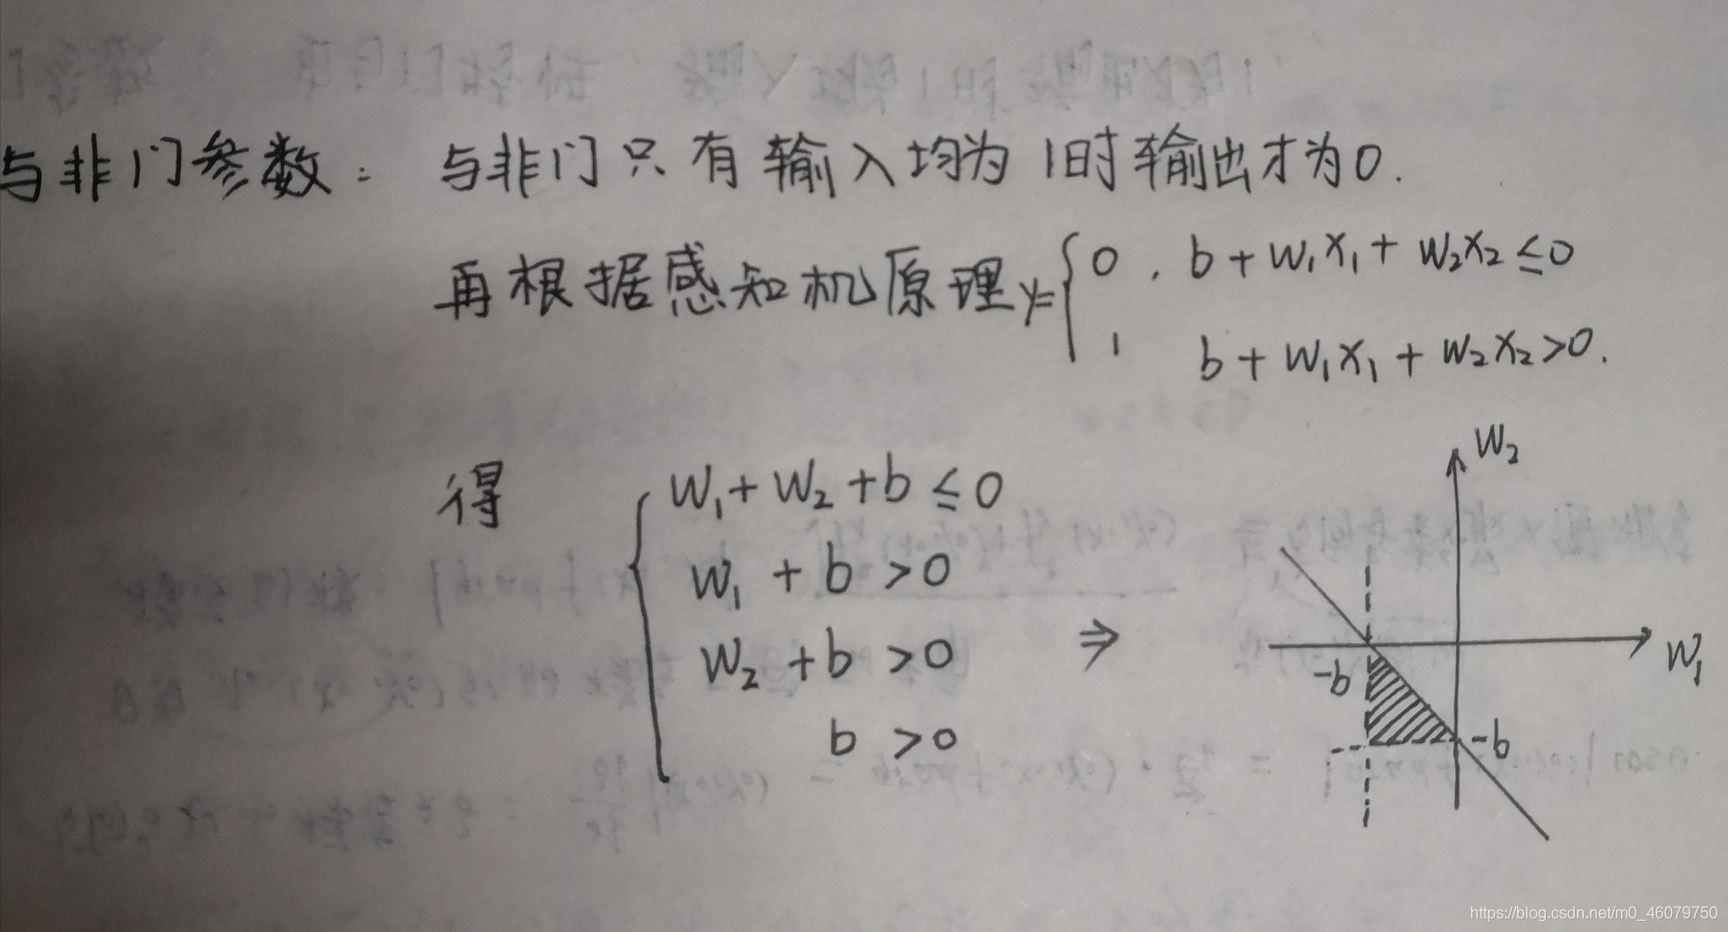 与非门参数： 与非门只有输入均为1时输出才为0.
再根据感知机原理 y={0 , b+w₁x₁+w₂x₂≤0
1 b+w₁x₁+w₂x₂>0.
得 w₁+w₂+b≤0
w₁+b>0
w₂+b>0
b>0
⇒
w₂
w₁
-b
-b
https://blog.csdn.net/m0_46079750